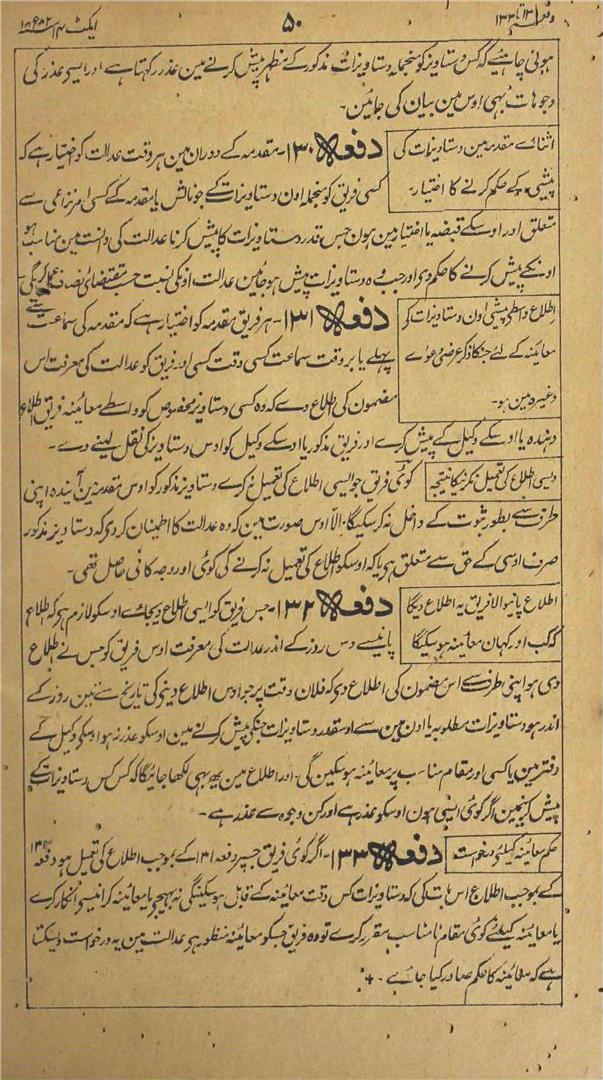 دفعہ ۱۳۰ تا ۱۳۳
۵۰
ایکٹ ۱۴ سنہ ۱۸۸۲ع
ہونی چاہئے کہ کس دستاویز کو منجملہ دستاویزات مذکور کے مظہر پیش کرنے مین عذر رکہتا ہے اور ایسے عذر کی
وجوہات بہی اوس مین بیان کی جائین۔
اثنائے مقدمہ مین دستاویزات کی
پیشی کے حکم کرنے کا اختیار۔
دفعہ ۱۳۰۔ مقدمہ کے دوران مین ہر وقت عدالت کو اختیار ہے کہ
کسی فریق کو منجملہ اون دستاویزات کے جو نالش یا مقدمہ کے کسی امر نزاعی سے
متعلق اور اوسکے قبضہ یا اختیار مین ہون جس قدر دستاویزات کا پیش کرنا عدالت کی دانست مین مناسب ہو
اونکے پیش کرنے کا حکم دی اور جب وہ دستاویزات پیش ہو جائین عدالت اونکی نسبت حسب مقتضای انصاف عمل کریگی۔
اطلاع واسطے پیشی اون دستاویزات کی
معائینہ کے لئے جنکا ذکر عرضی دعوے
وغیرہ مین ہو۔
دفعہ ۱۳۱۔ ہر فریق مقدمہ کو اختیار ہے کہ مقدمہ کی سماعت سے
پہلے یا بر وقت سماعت کسی وقت کسی اور فریق کو عدالت کی معرفت اس
مضمون کی اطلاع دے کہ وہ کسی دستاویز مخصوص کو واسطے معائینہ فریق اطلاع
دہندہ یا اوسکے وکیل کے پیش کرے اور فریق مذکور یا اوسکے وکیل کو اوس دستاویز کی نقل لینے دے۔
ویسی اطلاع کی تعمیل نکرنیکا نتیجہ
کوئی فریق جو ایسی اطلاع کی تعمیل نہ کرے دستاویز مذکور کو اوس مقدمہ مین آیندہ اپنی
طرف سے بطور ثبوت کے داخل نہ کر سکیگا۔ الا اوس صورت مین کہ وہ عدالت کا اطمینان کر دی کہ دستاویز مذکور
صرف اوسی کے حق سے متعلق ہی یا کہ اوسکو اطلاع کی تعمیل نہ کرنے کی کوئی اور وجہ کافی حاصل تھی۔
اطلاع پانیوالا فریق یہ اطلاع دیگا
کہ کب اور کہان معائینہ ہو سکیگا
دفعہ ۱۳۲۔ جس فریق کو ایسی اطلاع دیجائے اوسکو لازم ہی کہ اطلاع
پانیسے دس روز کے اندر عدالت کی معرفت اوس فریق کو جس نے اطلاع
دی ہو اپنی طرف سے اس مضمون کی اطلاع دی کہ فلان وقت پر جو اوس اطلاع دینی کی تاریخ سے تین روز کے
اندر ہو دستاویزات مطلوبہ یا اون مین سے اوسقدر دستاویزات جنکی پیش کرنے مین اوسکو عذر نہ ہو اوسکی وکیل کے
دفتر مین یا کسی اور مقام مناسب پر معائینہ ہو سکین گی۔ اور اطلاع مین یہ بہی لکھا جائیگا کہ کس کس دستاویزات کے
پیش کرنیمین اگر کوئی ایسی ہون اوسکو عذر ہے اور کن وجوہ سے عذر ہے۔
حکم معائینہ کیلئے درخواست
دفعہ ۱۳۳۔ اگر کوئی فریق جسپر دفعہ ۱۳۱ کے بموجب اطلاع کی تعمیل ہو دفعہ ۱۳۲
کے بموجب اطلاع اس بات کی کہ دستاویزات کس وقت معائینہ کے قابل ہو سکینگی نہ بہیجے یا معائینہ کرانیسے انکار کرے
یا معائینہ کیلئے کوئی مقام نامناسب مقرر کرے تو وہ فریق جسکو معائینہ منظور ہو عدالت مین یہ درخواست دیسکتا
ہے کہ معائینہ کا حکم صادر کیا جائے۔ +